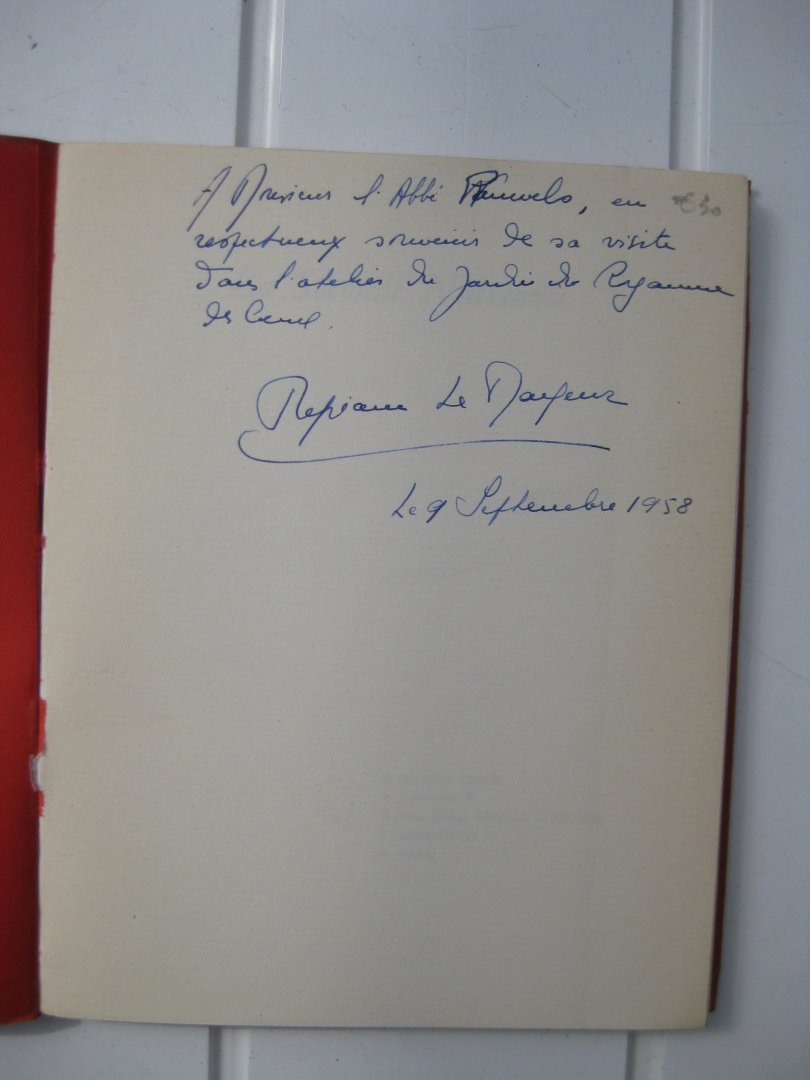 A Monsieur l'Abbé Pauwels, en €30
respectueux souvenir de sa visite
dans l'atelier du Jardin du Royaume
des Cieux.
Le Mayeur
Le 9 Septembre 1958